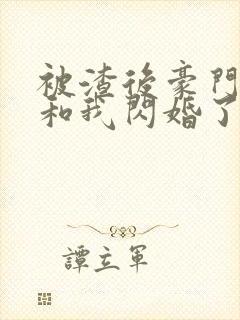 被渣後豪門
和我閃婚了
譚立軍